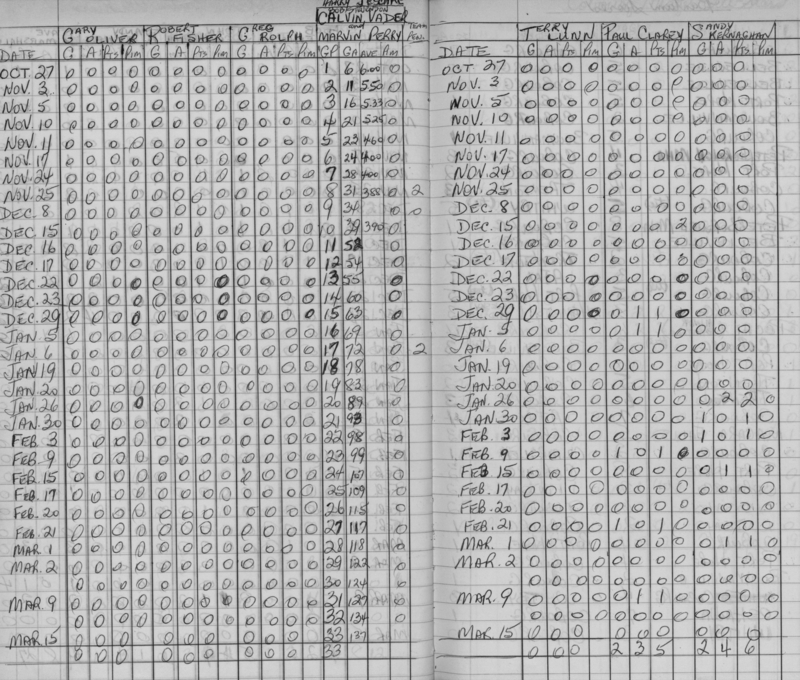 CALVIN VADER
GARY ROBERT GREG and TEAM
OLIVER FISHER ROLPH MARVIN PERRY PEN.
DATE G A PTS PIM G A PTS PIM G A PTS PIM GP GA AVE PIM
OCT 27 0 0 0 0 0 0 0 0 0 0 0 0 1 6 6.00 0
NOV. 3 0 0 0 0 0 0 0 0 0 0 0 0 2 11 5.50 0
NOV. 5 0 0 0 0 0 0 0 0 0 0 0 0 3 16 5.33 0
NOV. 10 0 0 0 0 0 0 0 0 0 0 0 0 4 21 5.25 0
NOV. 11 0 0 0 0 0 0 0 0 0 0 0 0 5 23 4.60 0
NOV. 17 0 0 0 0 0 0 0 0 0 0 0 0 6 24 4.00 0
NOV. 24 0 0 0 0 0 0 0 0 0 0 0 0 7 28 4.00 0
NOV. 25 0 0 0 0 0 0 0 0 0 0 0 0 8 31 3.88 0 2
DEC. 8 0 0 0 0 0 0 0 0 0 0 0 0 9 34 0 0
DEC. 15 0 0 0 0 0 0 0 0 0 0 0 0 10 39 3.90 0
DEC. 16 0 0 0 0 0 0 0 0 0 0 0 0 11 52 0
DEC. 17 0 0 0 0 0 0 0 0 0 0 0 0 12 54 0
DEC. 22 0 0 0 0 0 0 0 0 0 0 0 0 13 55 0
DEC. 23 0 0 0 0 0 0 0 0 0 0 0 0 14 60 0
DEC. 29 0 0 0 0 0 0 0 0 0 0 0 0 15 63 0
JAN. 5 0 0 0 0 0 0 0 0 0 0 0 0 16 69 0
JAN. 6 0 0 0 0 0 0 0 0 0 0 0 0 17 72 0 2
JAN. 19 0 0 0 0 0 0 0 0 0 0 0 0 18 78 0
JAN. 20 0 0 0 0 0 0 0 0 0 0 0 0 19 83 0
JAN. 26 0 0 0 0 0 0 0 0 0 0 0 0 20 89 0
JAN. 30 0 0 0 0 0 0 0 0 0 0 0 0 21 93 0
FEB. 3 0 0 0 0 0 0 0 0 0 0 0 0 22 98 0
FEB. 9 0 0 0 0 0 0 0 0 0 0 0 0 23 99 0
FEB. 15 0 0 0 0 0 0 0 0 0 0 0 0 24 107 0
FEB. 17 0 0 0 0 0 0 0 0 0 0 0 0 25 109 0
FEB. 20 0 0 0 0 0 0 0 0 0 0 0 0 26 115 0
FEB. 21 0 0 0 0 0 0 0 0 0 0 0 0 27 117 0
MAR. 1 0 0 0 0 0 0 0 0 0 0 0 0 28 118 0
MAR. 2 0 0 0 0 0 0 0 0 0 0 0 0 29 122 0
0 0 0 0 0 0 0 0 0 0 0 0 30 124 0
MAR. 9 0 0 0 0 0 0 0 0 0 0 0 0 31 127 0
0 0 0 0 0 0 0 0 0 0 0 0 32 134 0
MAR. 15 0 0 0 0 0 0 0 0 0 33 137
0 0 0 0 0 0 0 0 0 0 33
TERRY PAUL CLAREY SANDY
LUNN KERNAGHAN
DATE G A PTS PIM G A PTS PIM G A PTS PIM
OCT 27 0 0 0 0 0 0 0 0 0 0 0 0
NOV. 3 0 0 0 0 0 0 0 0 0 0 0 0
NOV. 5 0 0 0 0 0 0 0 0 0 0 0
NOV. 10 0 0 0 0 0 0 0 0 0 0 0
NOV. 11 0 0 0 0 0 0 0 0 0 0 0
NOV. 17 0 0 0 0 0 0 0 0 0 0 0
NOV. 24 0 0 0 0 0 0 0 0 0 0 0
NOV. 25 0 0 0 0 0 0 0 0 0 0 0
DEC. 8 0 0 0 0 0 0 0 0 0 0 0
DEC. 15 0 0 0 0 0 0 0 2 0 0 0
DEC. 16 0 0 0 0 0 0 0 0 0 0 0
DEC. 17 0 0 0 0 0 0 0 0 0 0 0
DEC. 22 0 0 0 0 0 0 0 0 0 0 0
DEC. 23 0 0 0 0 0 0 0 0 0 0 0
DEC. 29 0 0 0 0 0 1 1 0 0 0 0
JAN. 5 0 0 0 0 0 1 1 0 0 0 0
JAN. 6 0 0 0 0 0 0 0 0 0 0 0
JAN. 19 0 0 0 0 0 0 0 0 0 0 0
JAN. 20 0 0 0 0 0 0 0 0 0 0 0
JAN. 26 0 0 0 0 0 0 0 0 0 2 2 0
JAN. 30 0 0 0 0 0 0 0 0 1 0 1 0
FEB. 3 0 0 0 0 0 0 0 0 1 0 1 0
FEB. 9 0 0 0 0 1 0 1 0 0 0 0 0
FEB. 15 0 0 0 0 0 0 0 0 0 1 1 0
FEB. 17 0 0 0 0 0 0 0 0 0 0 0 0
FEB. 20 0 0 0 0 0 0 0 0 0 0 0 0
FEB. 21 0 0 0 0 1 0 1 0 0 0 0 0
MAR. 1 0 0 0 0 0 0 0 0 0 1 1 0
MAR. 2 0 0 0 0 0 0 0 0 0 0 0 0
0 0 0 0 0 0 0 0 0 0 0 0
MAR. 9 0 0 0 0 0 1 1 0 0 0 0 0
0 0 0 0 0 0 0 0 0 0 0 0
MAR. 15 0 0 0 0 0 0 0 0 0
0 0 0 2 3 5 2 4 6